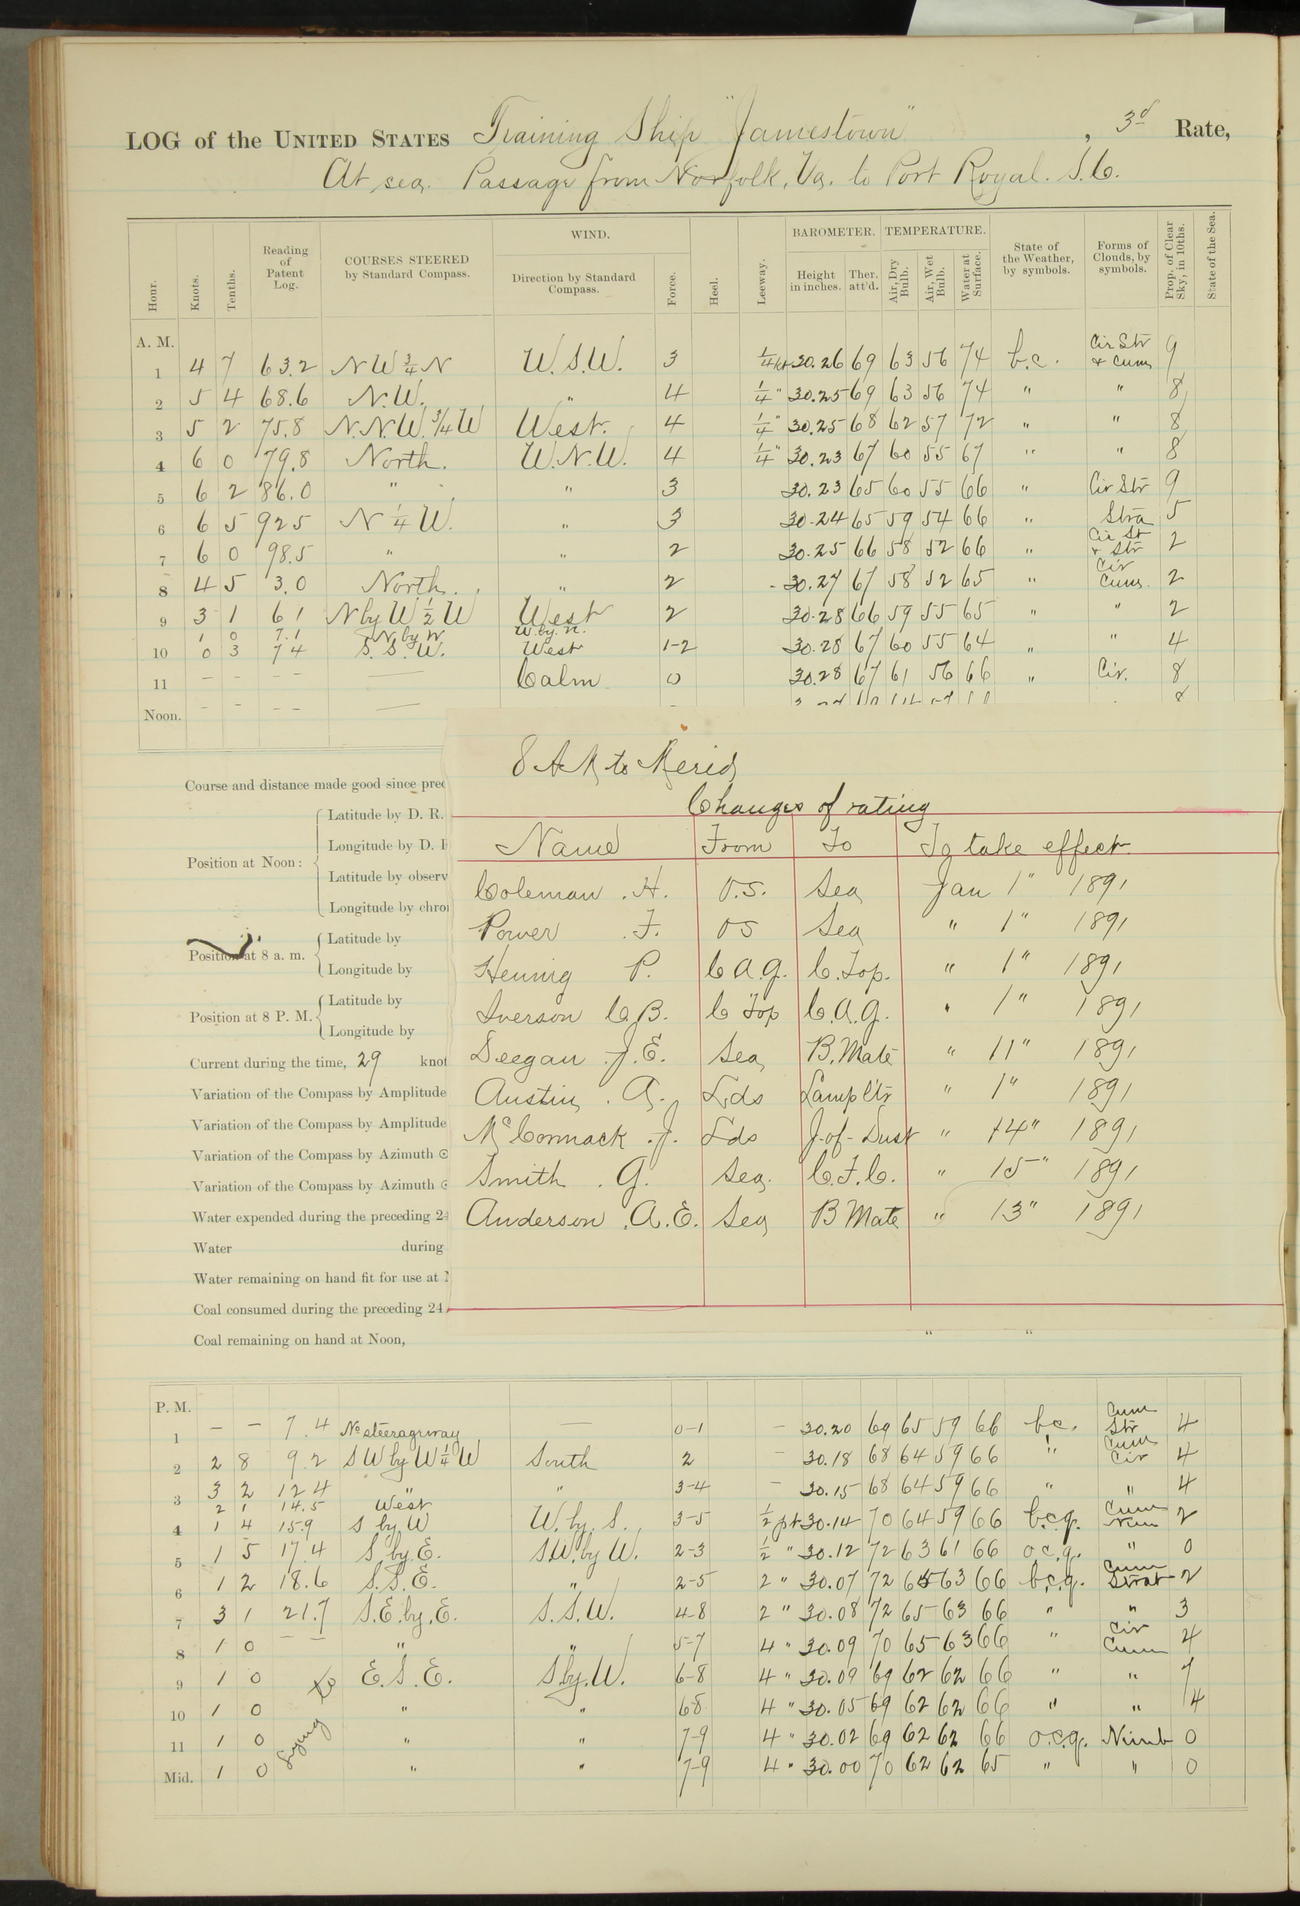 LOG of the UNITED STATES Training Ship "Jamestown", 3d Rate,
At sea. Passage from Norfolk, Va. to Port Royal. S.C.
Hour. Knots. Tenths. Reading of Patent Log. COURSES STEERED by Standard Compass. WIND. Direction by Standard Compass. Force. Heel. Leeway. BAROMETER. Height in inches. Ther. att'd. TEMPERATURE. Air, Dry Bulb. Air, Wet Bulb. Water at Surface. State of the Weather, by symbols. Forms of Clouds, by symbols. Prop. of Clear Sky, in 10ths. State of the Sea.
A. M.
1 4 7 63.2 NW 3/4 N W.S.W. 3 1/4 pt 30.26 69 63 56 74 b.c. Cir Str & Cum 9
2 5 4 68.6 N.W. " 4 1/4 " 30.25 69 63 56 74 " " 8
3 5 2 75.8 N.N.W. 3/4 W West. 4 1/4 " 30.25 68 62 57 72 " " 8
4 6 0 79.8 North. W.N.W. 4 1/4 " 30.23 67 60 55 67 " " 8
5 6 2 86.0 " " 3 30.23 65 60 55 66 " Cir Str 9
6 6 5 92.5 N 1/4 W. " 3 30.24 65 59 54 66 " Stra 5
7 6 0 98.5 " " 2 30.25 66 58 52 66 " Cir St & Str 2
8 4 5 3.0 North. " 2 - 30.27 67 58 52 65 " Cir Cum. 2
9 3 1 6 1 N by W 1/2 W West 2 30.28 66 59 55 65 " " 2
1 0 7.1 N by W W. by. N.
10 0 3 7 4 S. S. W. West 1-2 30.28 67 60 55 64 " " 4
11 - - - - — Calm 0 30.28 67 61 56 66 " Cir. 8
Noon. - - - - —
8 A.M. to Merid
Changes of rating
Course and distance made good since prec
Latitude by D. R.
Longitude by D. R
Position at Noon:
Latitude by observ
Longitude by chro
Position at 8 a. m.
Latitude by
Longitude by
Position at 8 P. M.
Latitude by
Longitude by
Current during the time, 29 knot
Variation of the Compass by Amplitude
Variation of the Compass by Amplitude
Variation of the Compass by Azimuth
Variation of the Compass by Azimuth
Water expended during the preceding 24
Water during
Water remaining on hand fit for use at
Coal consumed during the preceding 24
Coal remaining on hand at Noon, " "
Name From To To take effect
Coleman . H. O.S. Sea Jan 1" 1891
Power . F. OS Sea " 1" 1891
Hennig P. C A.G. C. Top. " 1" 1891
Iverson C.B. C Top C.A.G. " 1" 1891
Deegan . J.E. Sea B. Mate " 11" 1891
Austin . A. Lds Lampltr " 1" 1891
McCormack . J. Lds J-of-Dust " 14" 1891
Smith . G. Sea. C.F.C. " 15" 1891
Anderson . A.E. Sea B Mate " 13" 1891
P. M.
1 - - 7.4 No steerageway — 0-1 - 30.20 69 65 59 66 bc. Cum Str 4
2 2 8 9.2 SW by W 1/4 W South 2 - 30.18 68 64 59 66 " Cum Cir 4
3 3 2 12 4 " " 3-4 - 30.15 68 64 59 66 " " 4
2 1 14.5 West
4 1 4 15.9 S by W W. by. S. 3-5 1/2 pt 30.14 70 64 59 66 b.c.q. Cum Nim 2
5 1 5 17.4 S by E. SW. by W. 2-3 1/2 " 30.12 72 63 61 66 o.c.q. " 0
6 1 2 18.6 S.S.E. " 2-5 2 " 30.07 72 65 63 66 b.c.q. Cum Strat 2
7 3 1 21.7 S.E. by. E. S.S.W. 4-8 2 " 30.08 72 65 63 66 " " 3
8 1 0 - - " " 5-7 4 " 30.09 70 65 63 66 " Cir Cum 4
9 1 0 Lying to E.S.E. S by. W. 6-8 4 " 30.09 69 62 62 66 " " 7
10 1 0 " " 6-8 4 " 30.05 69 62 62 66 " " 4
11 1 0 " " 7-9 4 " 30.02 69 62 62 66 o.c.q. Nimb 0
Mid. 1 0 " " 7-9 4 " 30.00 70 62 62 65 " " 0